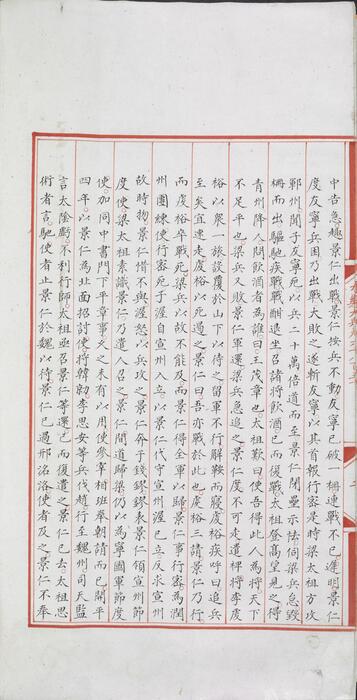 中告急趣景仁出戰景仁按兵不動友寧已破一柵連戰不已遲明景仁
度友寧兵困乃出戰大敗之遂斬友寧以其首報行密是時梁太祖方攻
鄆州聞子友寧死以兵二十萬倍道而至景仁閉壘示怯伺梁兵怠毀
柵而出驅馳疾戰戰酣退坐召諸將飲酒已而復戰太祖登高望見之得
青州降人問飲酒者為誰曰王茂章也太祖歎曰使吾得此人為將天下
不足平也梁兵又敗景仁軍還梁兵急追之景仁度不可走遣裨將李虔
裕以眾一旅設覆於山下以待之留軍不行解鞍而寢虔裕疾呼曰追兵
至矣宜速走虔裕以死遏之景仁曰吾亦戰於此也虔裕三請景仁乃行
而虔裕卒戰死梁兵以故不能及而景仁得全軍以歸景仁事行密為潤
州團練使行密死子渥自宣州入立以景仁代守宣州渥已立反求宣州
故時物景仁惜不與渥怒以兵攻之景仁奔于錢鏐鏐表景仁領宣州節
度使梁太祖素識景仁乃遣人召之景仁間道歸梁仍以為寧國軍節度
使加同中書門下平章事久之未有以用使參宰相班奉朝請而已開平
四年以景仁為北面招討使將韓勍李思安等兵伐趙行至魏州司天監
言太陰虧不利行師太祖亟召景仁等還已而復遣之景仁已去太祖思
術者言馳使者止景仁於魏以待景仁已過邢洺洛使者及之景仁不奉